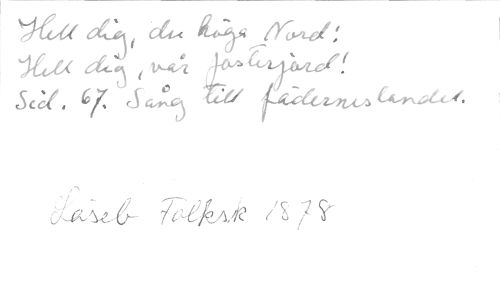 Hell dig, du höga Nord!
Hell dig, vår fosterjord!
Sid. 67. Sång till fäderneslandet.
Läseb Folksk 1878